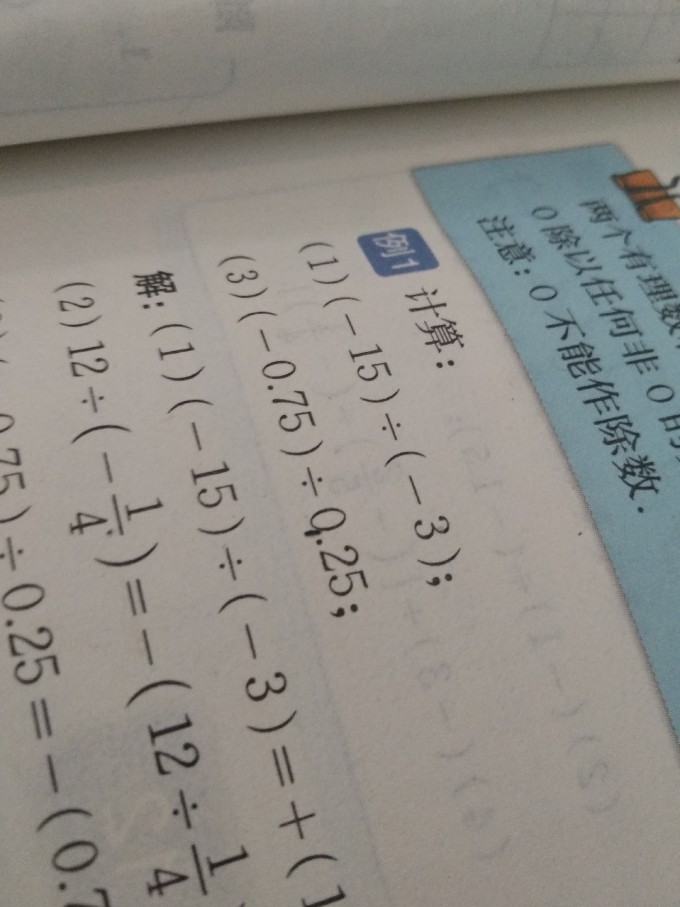 两个有理数
0除以任何非0的
注意：0不能作除数.
例1 计算：
(1)(-15)÷(-3);
(3)(-0.75)÷0.25;
解：(1)(-15)÷(-3)=+(1
(2)12÷(-1/4)=-(12÷1/4)
0.75)÷0.25=-(0.7